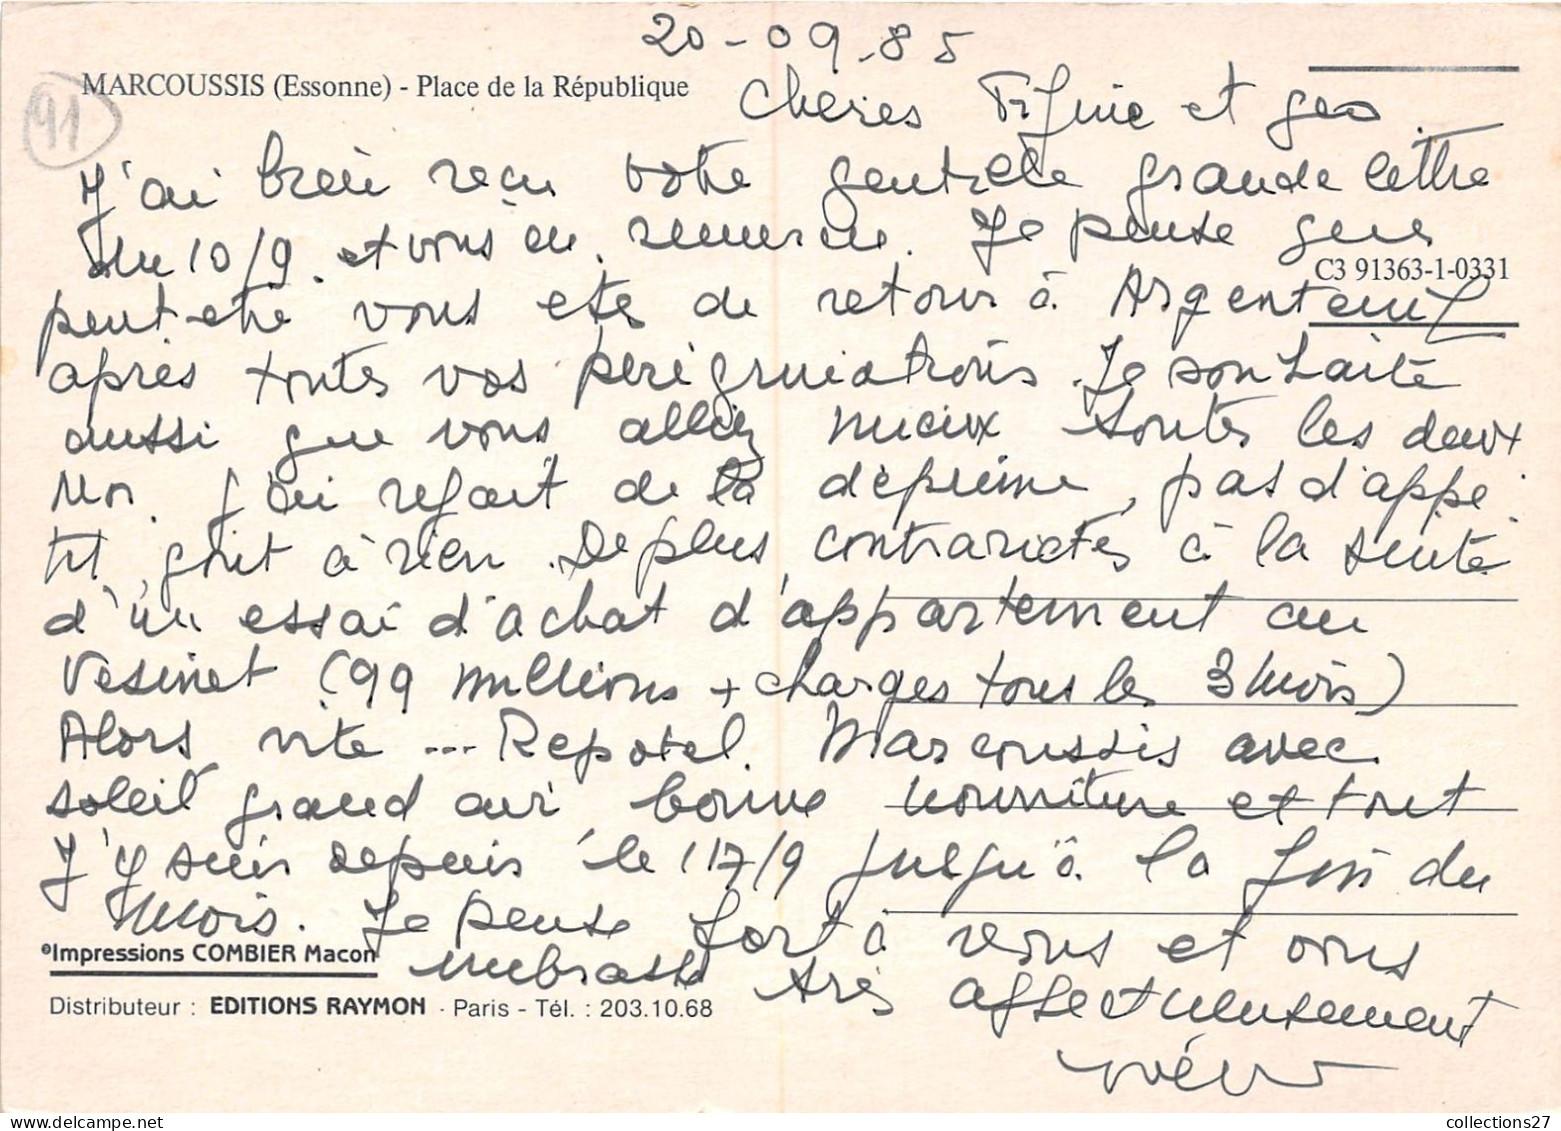 20-09.85
MARCOUSSIS (Essonne) - Place de la République
91
Chères et Géo.
J'ai bien reçu votre gentille grande lettre
du 10/9. et vous en remercie. Je pense que
C3 91363-1-0331
peut-être vous etes de retour à Argenteuil
après toutes vos pérégrinations. Je souhaite
aussi que vous alliez mieux toutes les deux
Moi j'ai refait de la déprime, pas d'appé
tit, goût à rien. De plus, contrariétés à la suite
d'un essai d'achat d'appartement au
Vesinet (99 millions + charges tous les 3 mois)
Alors vite ... Repotel. Marcoussis avec
soleil grand air bonne nourriture et tout
J'y suis depuis le 17/9 jusqu'à la fin du
mois. Je pense fort à vous et vous
embrasse très affectueusement
Impressions COMBIER Macon
Distributeur : EDITIONS RAYMON - Paris - Tél. : 203.10.68
collections27